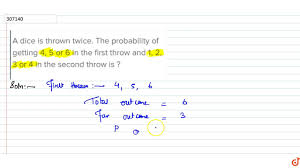 307140
A dice is thrown twice. The probability of
getting 4, 5 or 6 in the first throw and 1, 2,
3 or 4 in the second throw is ?
Soln:- First throw : 4, 5, 6
Total outcome = 6
Fav outcome = 3
P